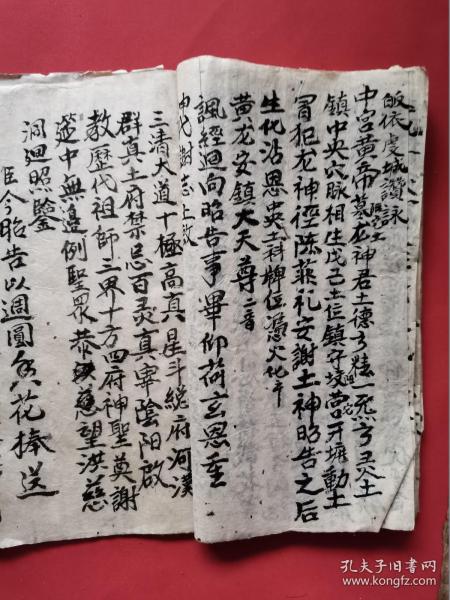 皈依虔城讚詠
中宮黃帝墓龙神君土德之精一炁之灵土
鎮中央穴脉相生戊己土位鎮守坟塋牙塀動土
冒犯龙神徑陈菲礼安謝土神昭告之后
生化沾恩中央土科牌位馮火化下
黄龙安鎮大天尊二音
諷經迴向昭告事畢仰荷玄恩重
申代謝志上啟
三清大道十極高真星斗総府河漢
群真土府禁忌百灵真宰陰陽啟
教歷代祖師三界十方四府神聖奠謝
筵中無邉例聖眾恭 慈望洪慈
洞廻照鑒
臣今昭告以週圓香花捧送
孔夫子旧书网
www.kongfz.com